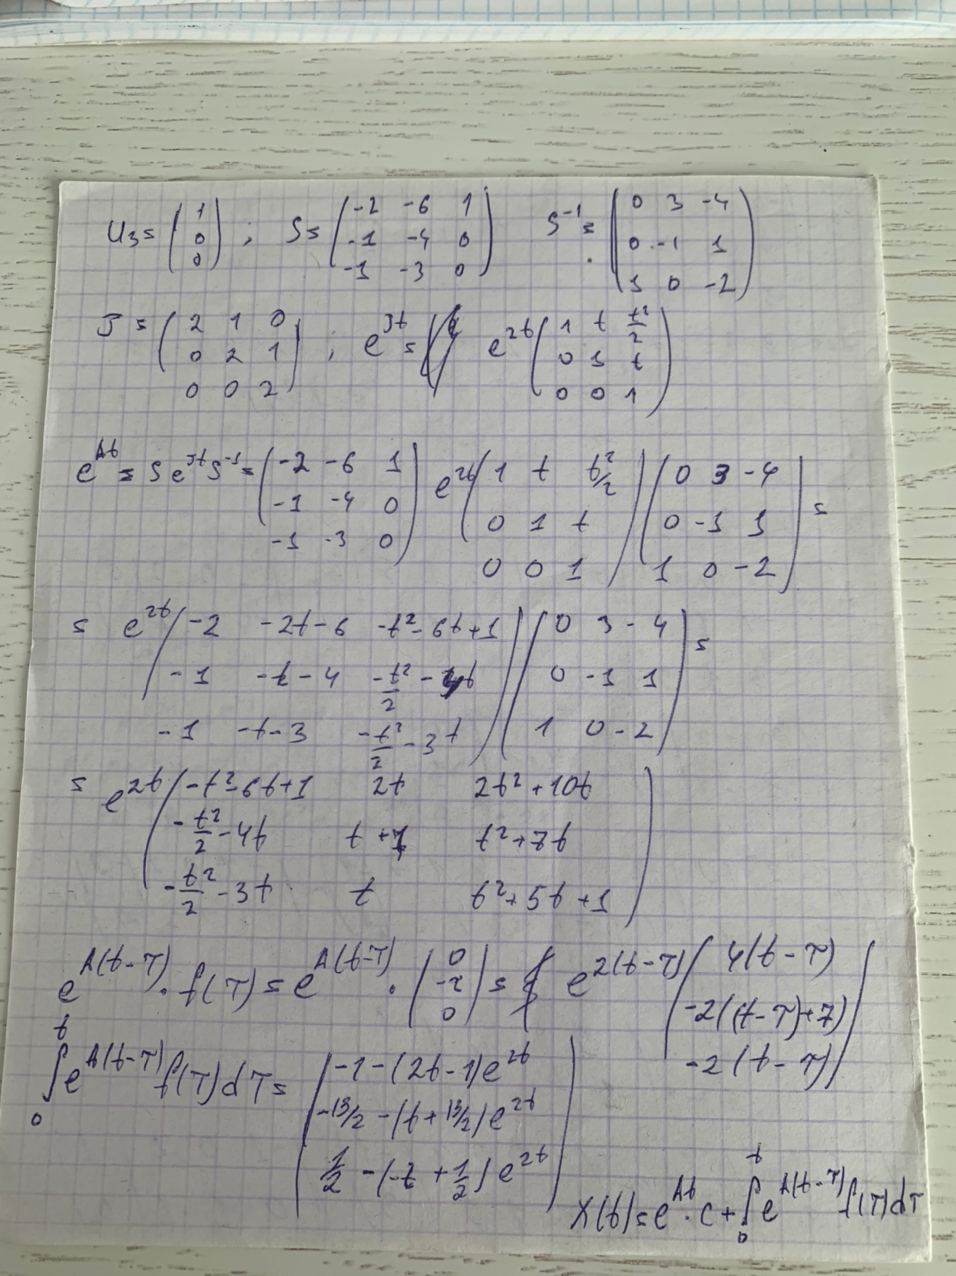 U₃ = (1; 0; 0) ; S = (-2 -6 1; -1 -4 0; -1 -3 0) S⁻¹ = (0 3 -4; 0 -1 1; 1 0 -2)
J = (2 1 0; 0 2 1; 0 0 2) ; e^{Jt} = e^{2t} (1 t t²/2; 0 1 t; 0 0 1)
e^{At} = S e^{Jt} S⁻¹ = (-2 -6 1; -1 -4 0; -1 -3 0) e^{2t} (1 t t²/2; 0 1 t; 0 0 1) (0 3 -4; 0 -1 1; 1 0 -2) =
= e^{2t} (-2 -2t-6 -t²-6t+1; -1 -t-4 -t²/2-4t; -1 -t-3 -t²/2-3t) (0 3 -4; 0 -1 1; 1 0 -2) =
= e^{2t} (-t²-6t+1 2t 2t²+10t; -t²/2-4t t+1 t²+7t; -t²/2-3t t t²+5t+1)
e^{A(t-τ)} · f(τ) = e^{A(t-τ)} · (0; -2; 0) = e^{2(t-τ)} (4(t-τ); -2((t-τ)+7); -2(t-τ))
∫₀ᵗ e^{A(t-τ)} f(τ)dτ = (-1-(2t-1)e^{2t}; -13/2-(t+13/2)e^{2t}; 1/2-(-t+1/2)e^{2t})
X(t) = e^{At} · c + ∫₀ᵗ e^{A(t-τ)} f(τ)dτ